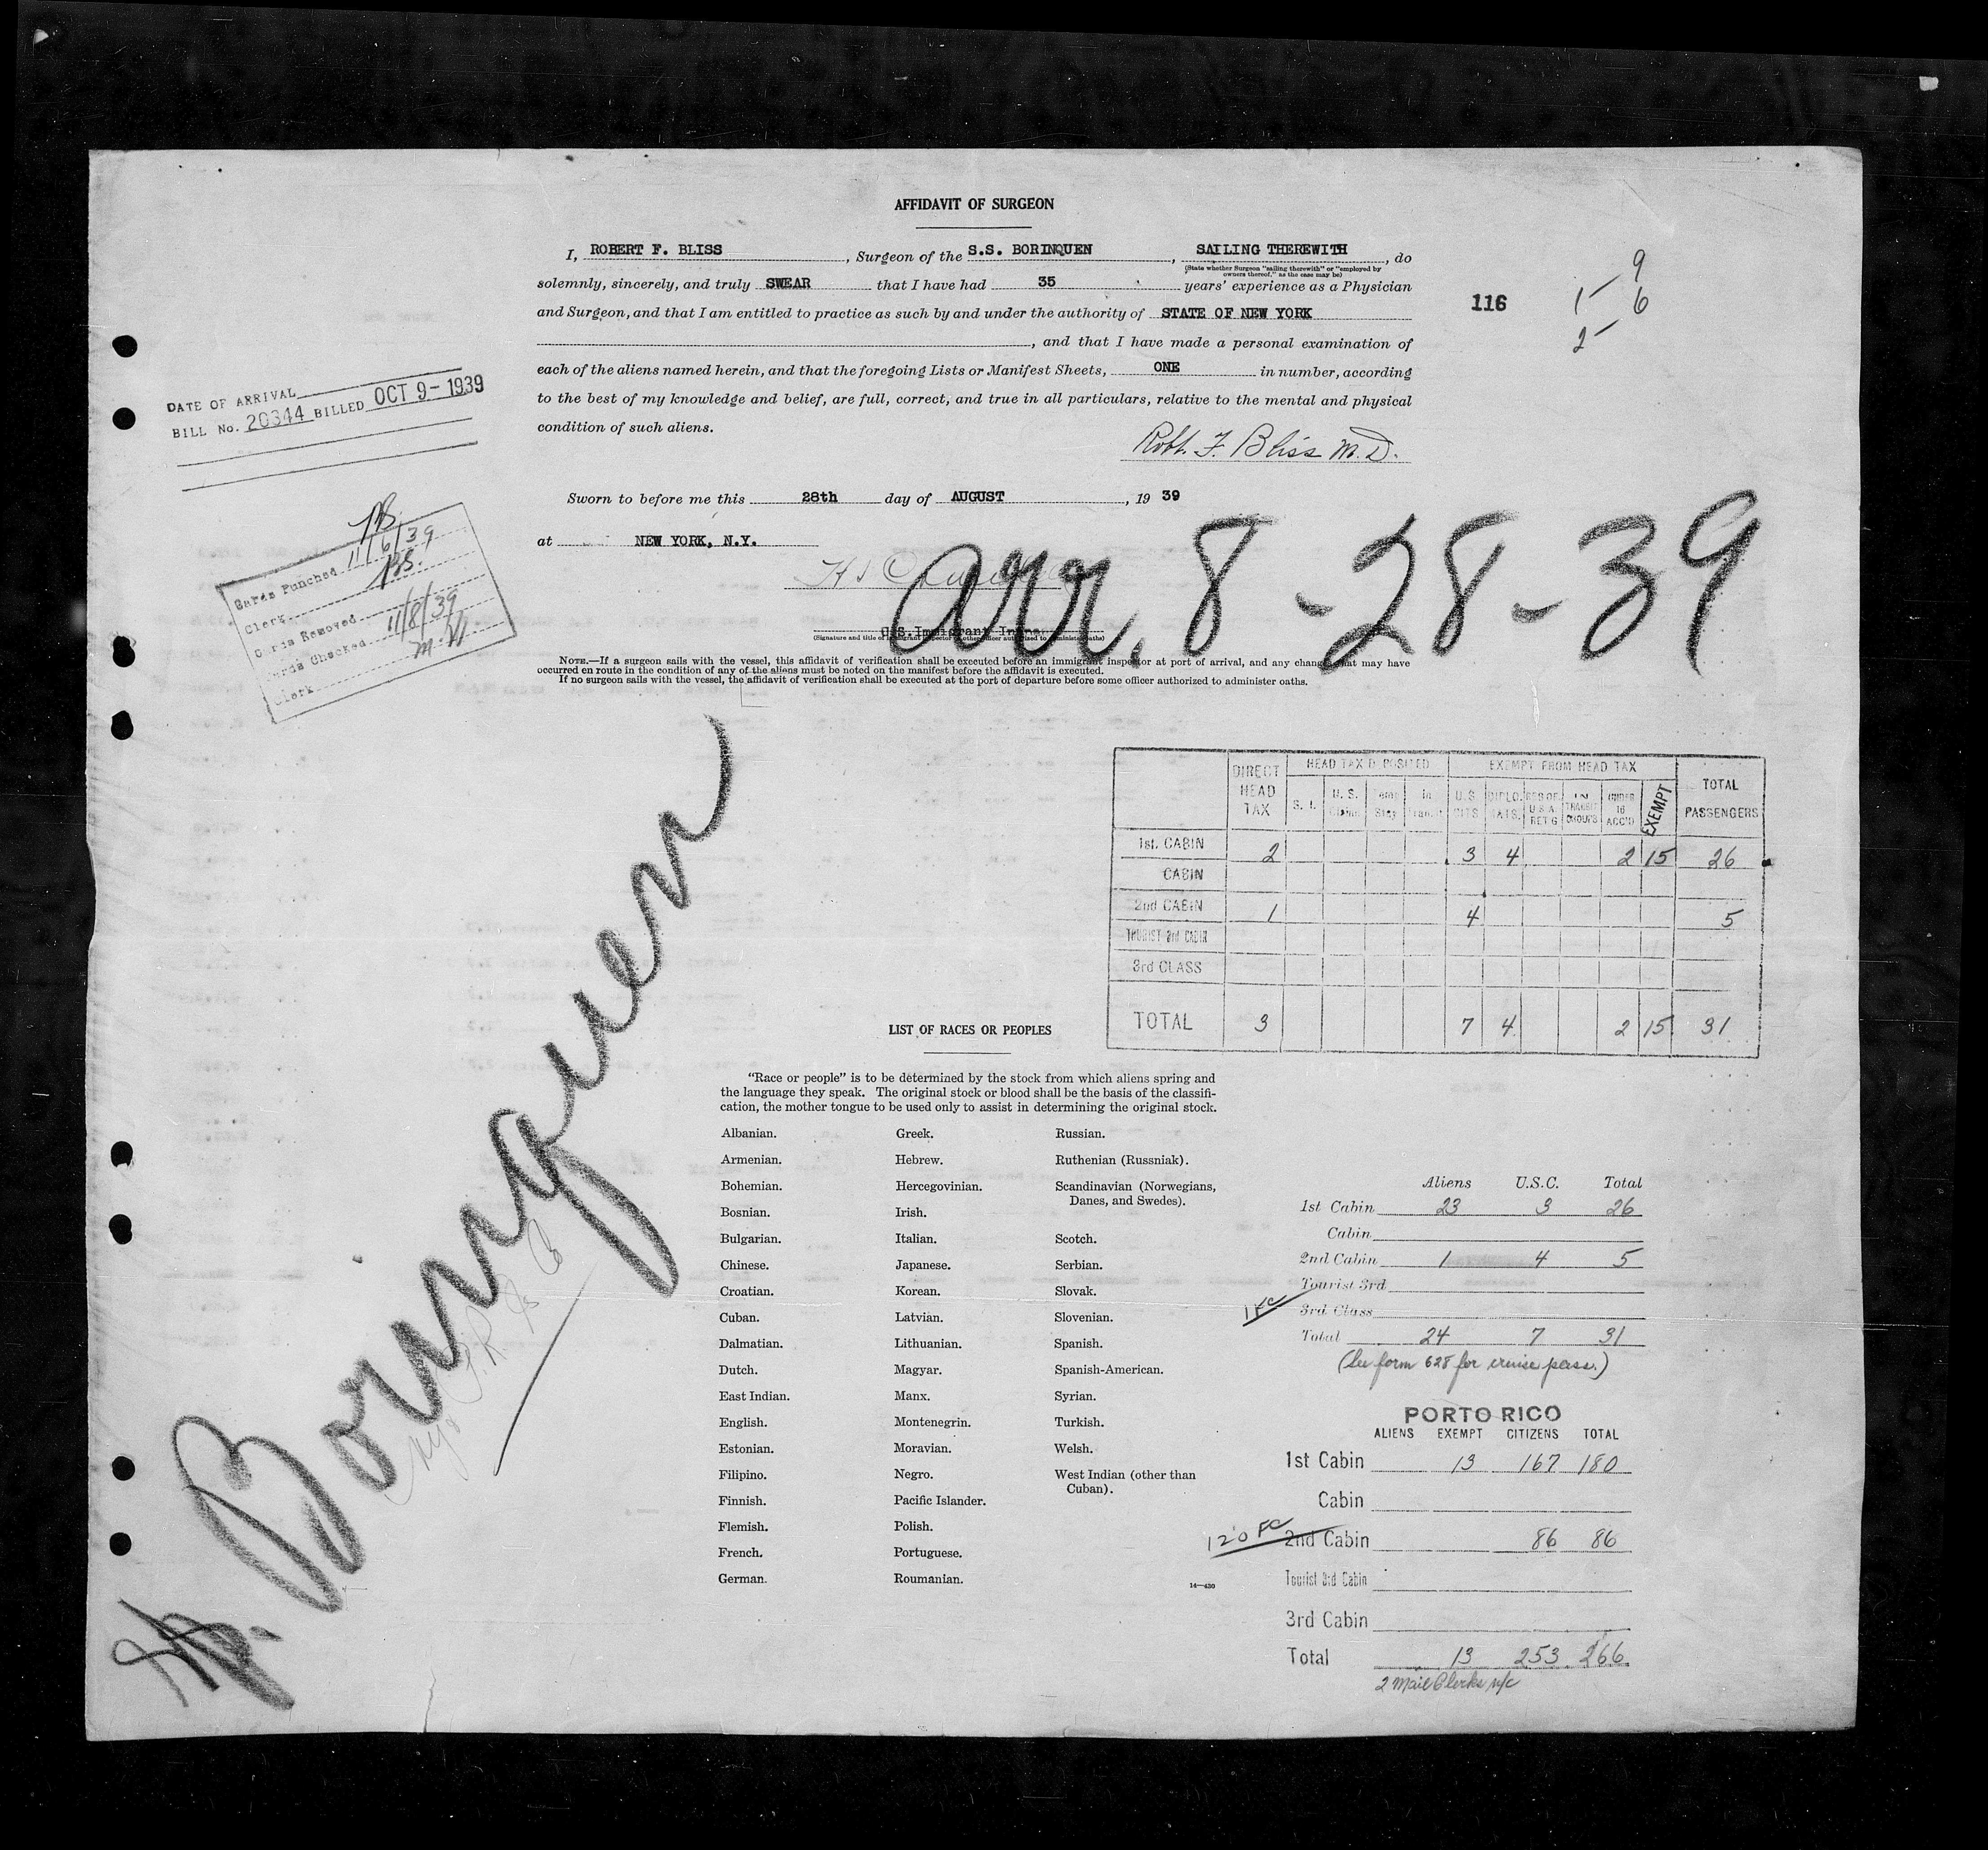 AFFIDAVIT OF SURGEON
I, ROBERT F. BLISS, Surgeon of the S.S. BORINQUEN, SAILING THEREWITH, do
(State whether Surgeon "sailing therewith" or "employed by
owners thereof," as the case may be)
solemnly, sincerely, and truly SWEAR that I have had 35 years' experience as a Physician
and Surgeon, and that I am entitled to practice as such by and under the authority of STATE OF NEW YORK
, and that I have made a personal examination of
each of the aliens named herein, and that the foregoing Lists or Manifest Sheets, ONE in number, according
to the best of my knowledge and belief, are full, correct, and true in all particulars, relative to the mental and physical
condition of such aliens.
Robt. F. Bliss M.D.
Sworn to before me this 28th day of AUGUST, 19 39
at NEW YORK, N.Y.
arr. 8-28-39
U.S. Immigrant Insp.
(Signature and title of immigrant inspector or other officer authorized to administer oaths)
NOTE.—If a surgeon sails with the vessel, this affidavit of verification shall be executed before an immigrant inspector at port of arrival, and any change that may have
occurred en route in the condition of any of the aliens must be noted on the manifest before the affidavit is executed.
If no surgeon sails with the vessel, the affidavit of verification shall be executed at the port of departure before some officer authorized to administer oaths.
116
9
1- 6
2-
DATE OF ARRIVAL
BILL No. 20344 BILLED OCT 9-1939
Cards Punched 11/6/39
Clerk
Cards Removed
Cards Checked 11/8/39
Clerk
Borinquen
DIRECT HEAD TAX
HEAD TAX DEPOSITED
S. I.
U. S.
Temp Stay
In Transit
EXEMPT FROM HEAD TAX
U.S. CITS.
DIPLOMATS.
RES OF U.S.A. RET'G
IN TRANSIT HOURS
UNDER 16 ACC'D
EXEMPT
TOTAL PASSENGERS
1st. CABIN 2 3 4 2 15 26
CABIN
2nd CABIN 1 4 5
TOURIST 3rd CABIN
3rd CLASS
TOTAL 3 7 4 2 15 31
LIST OF RACES OR PEOPLES
"Race or people" is to be determined by the stock from which aliens spring and
the language they speak. The original stock or blood shall be the basis of the classifi-
cation, the mother tongue to be used only to assist in determining the original stock.
Albanian. Greek. Russian.
Armenian. Hebrew. Ruthenian (Russniak).
Bohemian. Hercegovinian. Scandinavian (Norwegians,
Danes, and Swedes).
Bosnian. Irish.
Bulgarian. Italian. Scotch.
Chinese. Japanese. Serbian.
Croatian. Korean. Slovak.
Cuban. Latvian. Slovenian.
Dalmatian. Lithuanian. Spanish.
Dutch. Magyar. Spanish-American.
East Indian. Manx. Syrian.
English. Montenegrin. Turkish.
Estonian. Moravian. Welsh.
Filipino. Negro. West Indian (other than
Cuban).
Finnish. Pacific Islander.
Flemish. Polish.
French. Portuguese.
German. Roumanian.
14—430
Aliens U.S.C. Total
1st Cabin 23 3 26
Cabin
2nd Cabin 1 4 5
Tourist 3rd
1 FC
3rd Class
Total 24 7 31
(See form 628 for cruise pass.)
PORTO RICO
ALIENS EXEMPT CITIZENS TOTAL
1st Cabin 13 167 180
Cabin
120 FC
2nd Cabin 86 86
Tourist 3rd Cabin
3rd Cabin
Total 13 253 266
2 Mail Clerks n/c